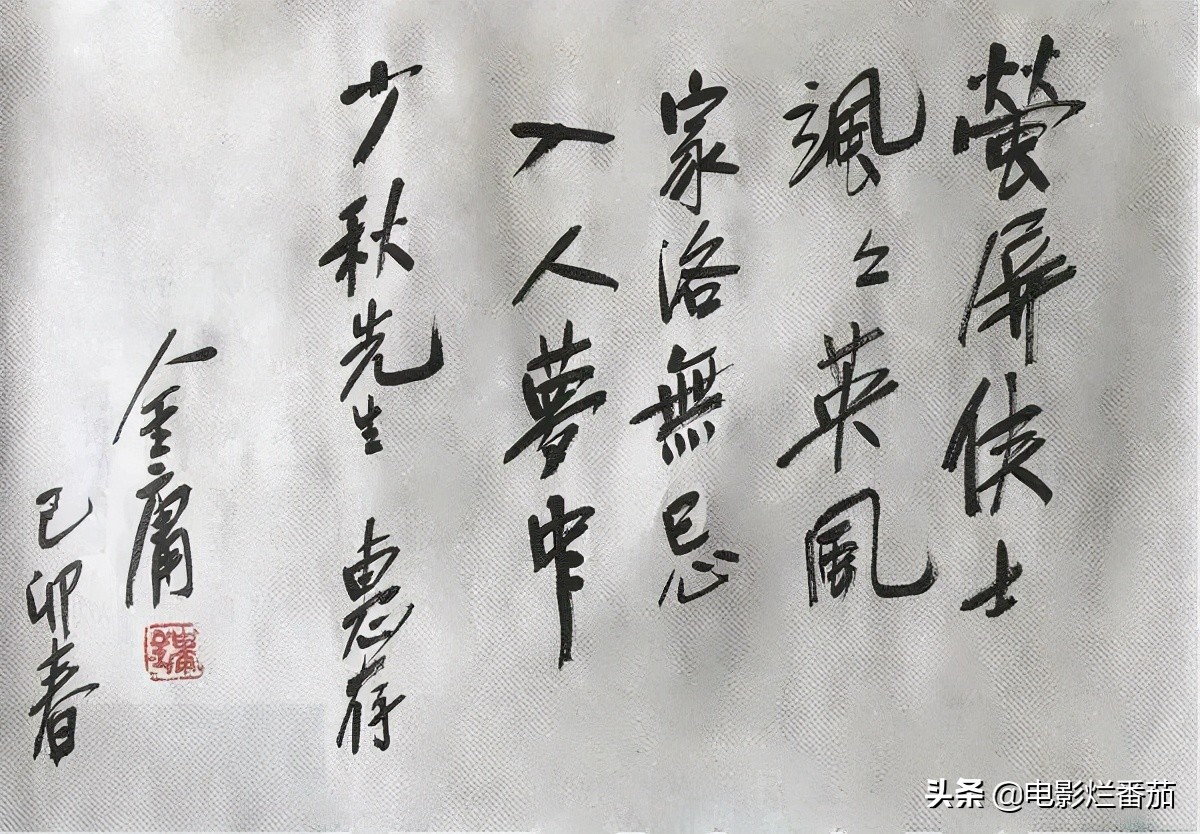 螢屏俠士
颯々英風
家洛無忌
入人夢中
少秋先生 惠存
金庸
己卯春
頭条 @电影烂番茄